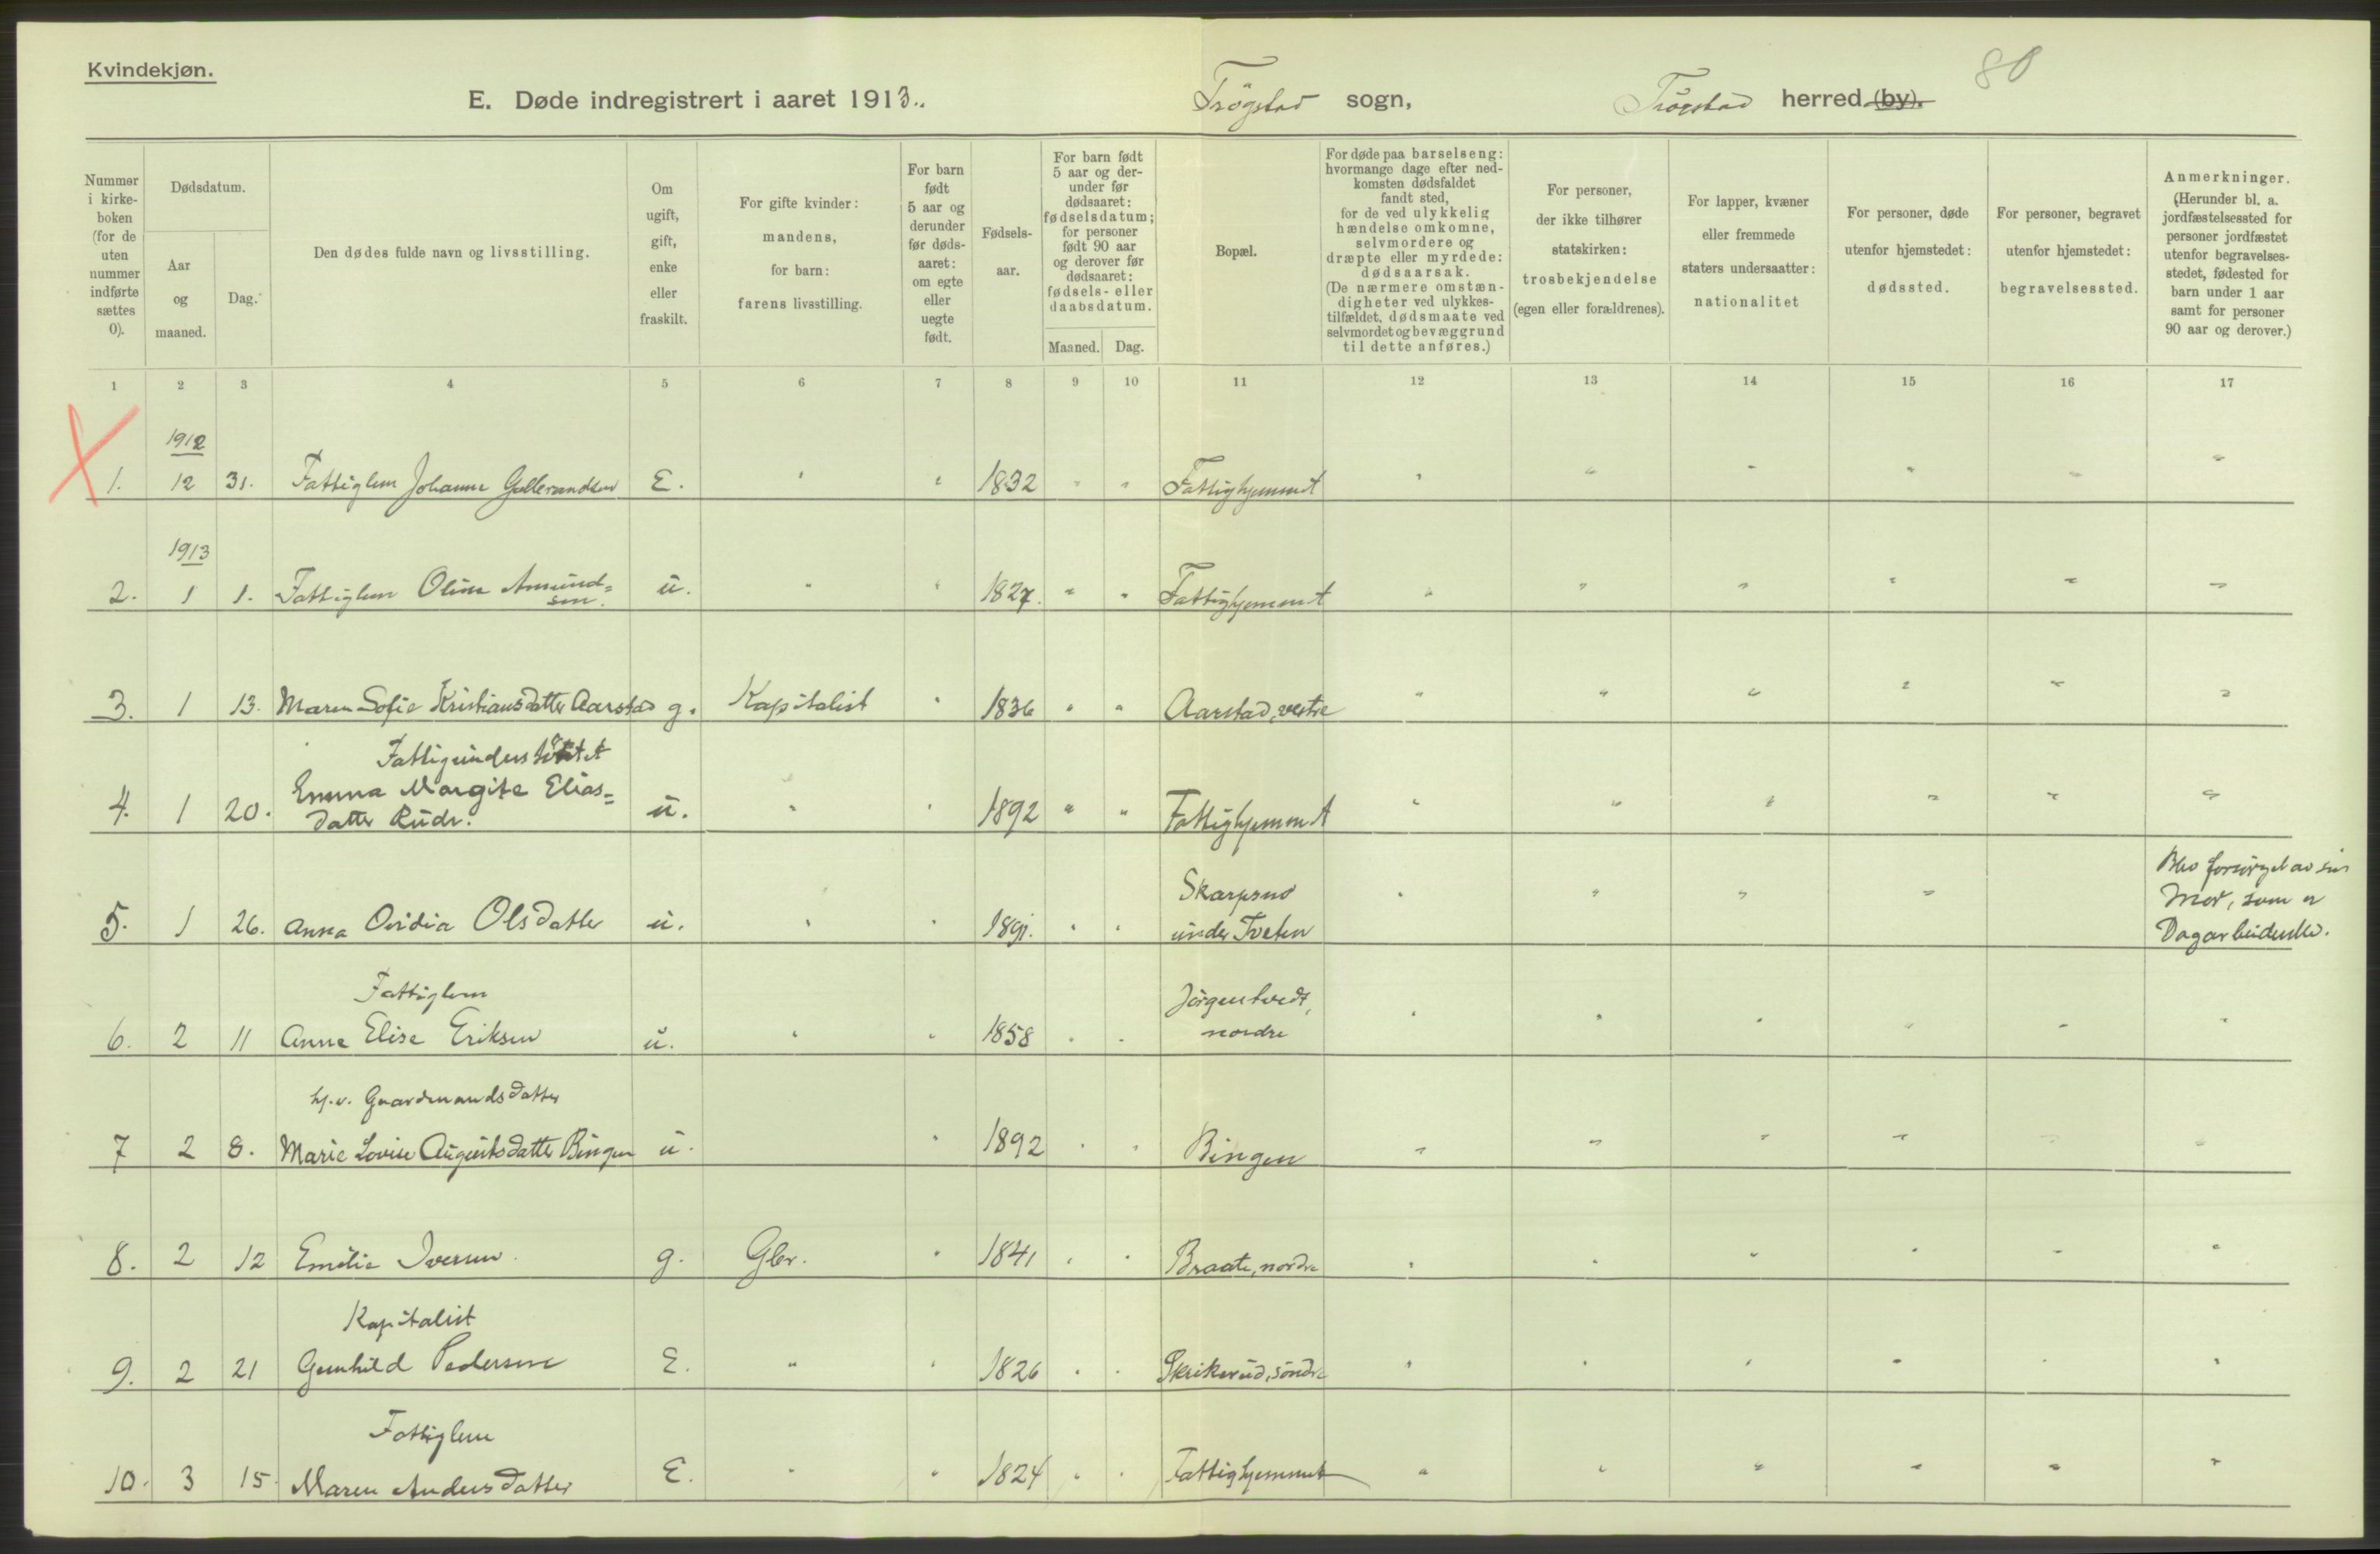 Kvindekjøn.
80
E. Døde indregistrert i aaret 1913. Trögstad sogn, Trögstad herred (by).
Nummer i kirke-boken (for de uten nummer indførte sættes 0).
Dødsdatum.
Aar og maaned.
Dag.
Den dødes fulde navn og livsstilling.
Om ugift, gift, enke eller fraskilt.
For gifte kvinder: mandens, for barn: farens livsstilling.
For barn født 5 aar og derunder før døds-aaret: om egte eller uegte født.
Fødsels-aar.
For barn født 5 aar og der-under før dødsaaret: fødselsdatum; for personer født 90 aar og derover før dødsaaret: fødsels- eller daabsdatum.
Maaned. Dag.
Bopæl.
For døde paa barselseng: hvormange dage efter ned-komsten dødsfaldet fandt sted, for de ved ulykkelig hændelse omkomne, selvmordere og dræpte eller myrdede: dødsaarsak. (De nærmere omstæn-digheter ved ulykkes-tilfældet, dødsmaate ved selvmordet og bevæggrund til dette anføres.)
For personer, der ikke tilhører statskirken: trosbekjendelse (egen eller forældrenes).
For lapper, kvæner eller fremmede staters undersaatter: nationalitet
For personer, døde utenfor hjemstedet: dødssted.
For personer, begravet utenfor hjemstedet: begravelsessted.
Anmerkninger. (Herunder bl. a. jordfæstelsessted for personer jordfæstet utenfor begravelses-stedet, fødested for barn under 1 aar samt for personer 90 aar og derover.)
1 2 3 4 5 6 7 8 9 10 11 12 13 14 15 16 17
1912
1. 12 31. Fattiglem Johanne Gulbrandsen E. " " 1832 " " Fattighjemmet " " " " " "
1913
2. 1 1. Fattiglem Oline Amund=
sen. u. " " 1827. " " Fattighjemmet " " " " " "
3. 1 13. Maren Sofie Kristiansdatter Aarstad g. Kapitalist " 1836 " " Aarstad, vestre " " " " " "
Fattigunderstöttet
Emma Margite Elias=
4. 1 20. datter Rud. u. " " 1892 " " Fattighjemmet " " " " " "
Skarpsno Blev forsörget av sin
Mor, som er
5. 1 26. Anna Ovidia Olsdatter u. " " 1891. " " under Tveten " " " " Dagarbeiderske.
Fattiglem Jörgentvedt,
6. 2 11 Anne Elise Eriksen u. " " 1858 " " nordre " " " " " "
hj.v. Gaardmandsdatter
7 2 8. Marie Lovise Augustsdatter Bingen u. " 1892 " " Bingen " " " " " "
8. 2 12 Emilie Iversen g. Gbr. " 1841 " " Braate, nordre " " " " " "
Kapitalist
9. 2 21 Gunhild Pedersen E. " " 1826 " " Skrikerud, söndre " " " " " "
Fattiglem
10. 3 15. Maren Andersdatter E. " " 1824 " " Fattighjemmet " " " " " "